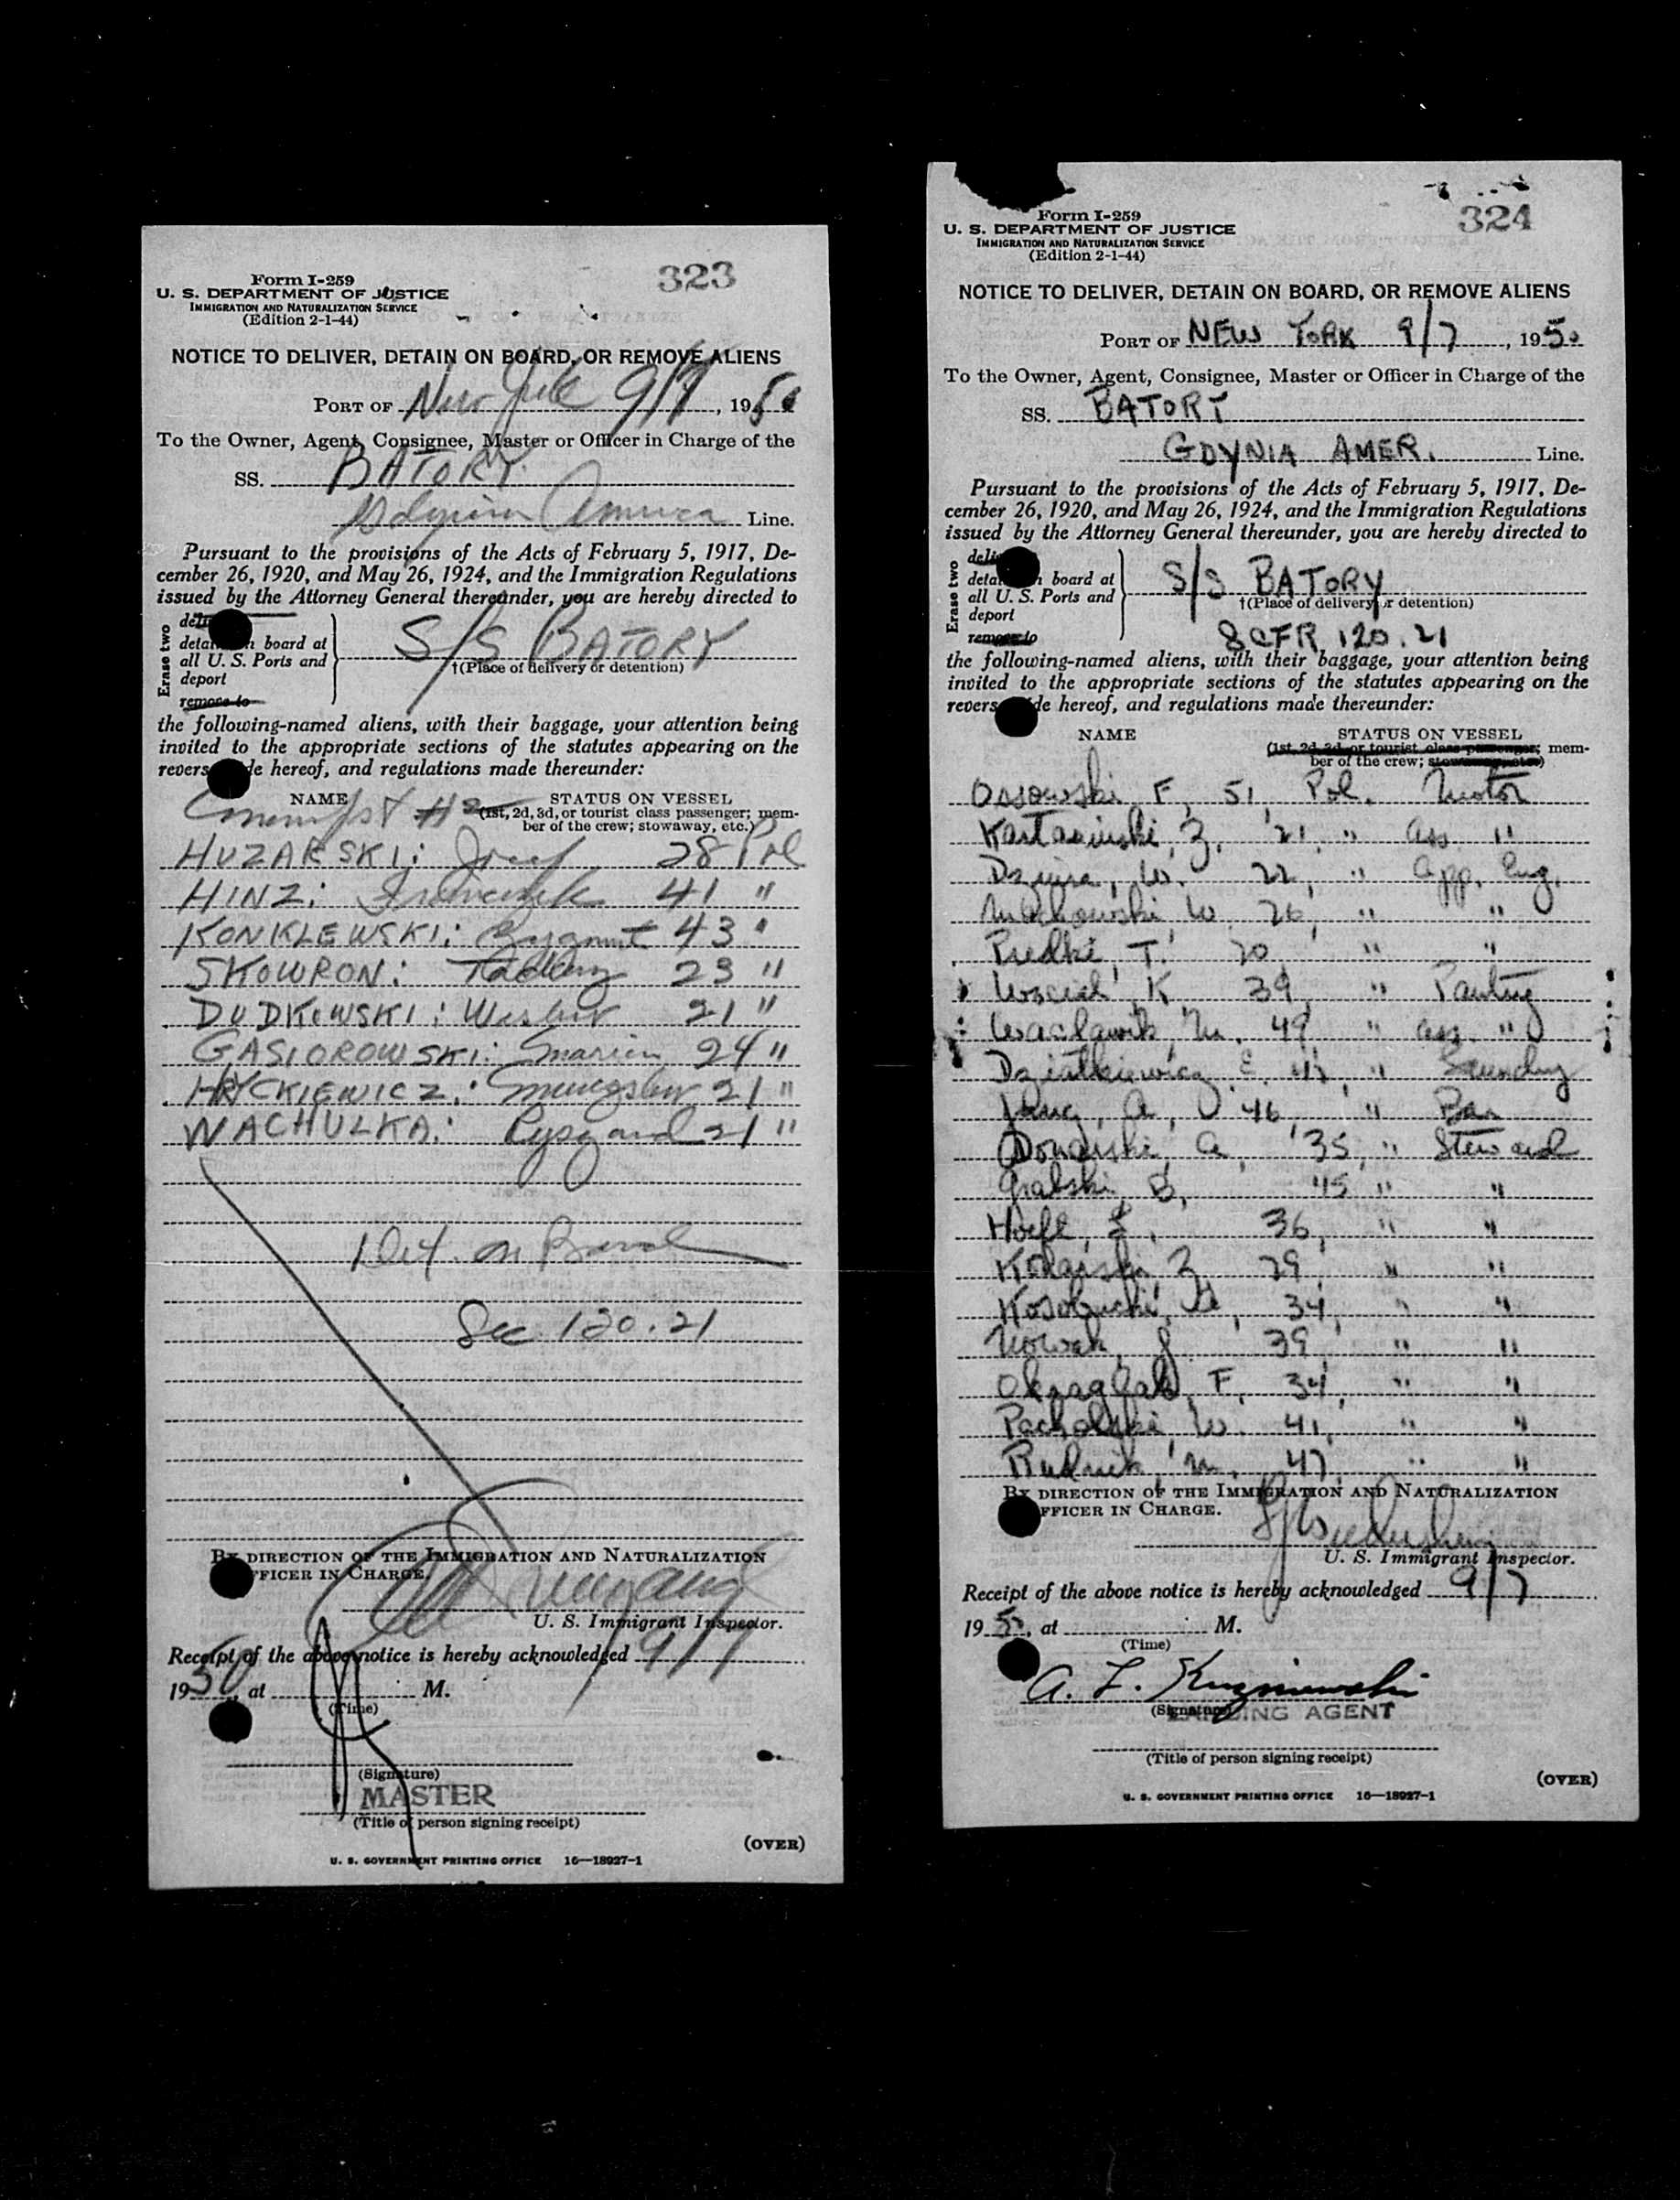 323
Form I-259
U. S. DEPARTMENT OF JUSTICE
IMMIGRATION AND NATURALIZATION SERVICE
(Edition 2-1-44)
NOTICE TO DELIVER, DETAIN ON BOARD, OR REMOVE ALIENS
PORT OF New York 9/7, 1950
To the Owner, Agent, Consignee, Master or Officer in Charge of the
SS. BATORY
Gdynia America Line.
Pursuant to the provisions of the Acts of February 5, 1917, De-
cember 26, 1920, and May 26, 1924, and the Immigration Regulations
issued by the Attorney General thereunder, you are hereby directed to
Erase two
board at
all U. S. Ports and
deport
remove to
S/S BATORY
†(Place of delivery or detention)
the following-named aliens, with their baggage, your attention being
invited to the appropriate sections of the statutes appearing on the
hereof, and regulations made thereunder:
NAME STATUS ON VESSEL
(1st, 2d, 3d, or tourist class passenger; mem-
ber of the crew; stowaway, etc.)
HUZARSKI: Josef 28 Pol
HINZ: 41 "
KONKLEWSKI: Zygmunt 43 "
SKOWRON: 23 "
DUDKOWSKI: 21 "
GASIOROWSKI: Marian 24 "
HRYCKIEWICZ: 21 "
WACHULKA: Ryszard 21 "
Det. on Board
Sec 120.21
BY DIRECTION OF THE IMMIGRATION AND NATURALIZATION
OFFICER IN CHARGE.
U. S. Immigrant Inspector.
Receipt of the above notice is hereby acknowledged 9/7
1950, at M.
(Time)
(Signature)
MASTER
(Title of person signing receipt)
(OVER)
U. S. GOVERNMENT PRINTING OFFICE 16—18927-1
324
Form I-259
U. S. DEPARTMENT OF JUSTICE
IMMIGRATION AND NATURALIZATION SERVICE
(Edition 2-1-44)
NOTICE TO DELIVER, DETAIN ON BOARD, OR REMOVE ALIENS
PORT OF NEW YORK 9/7, 1950
To the Owner, Agent, Consignee, Master or Officer in Charge of the
SS. BATORY
GDYNIA AMER. Line.
Pursuant to the provisions of the Acts of February 5, 1917, De-
cember 26, 1920, and May 26, 1924, and the Immigration Regulations
issued by the Attorney General thereunder, you are hereby directed to
Erase two
board at
all U. S. Ports and
deport
remove to
S/S BATORY
†(Place of delivery or detention)
8 CFR 120.21
the following-named aliens, with their baggage, your attention being
invited to the appropriate sections of the statutes appearing on the
hereof, and regulations made thereunder:
NAME STATUS ON VESSEL
(1st, 2d, 3d, or tourist class passenger; mem-
ber of the crew; stowaway, etc.)
Ossowski, F, 51, Pol. Motor
Z, 21, " Ass. "
W. 22, " App. Eng.
W 26, " "
T. 20 " "
K, 39, " Pantry
M. 49, " ass. "
Dziatkiewicz, E. " Laundry
A, 46, " Bar
A, 35, " Steward
Grabski, B, 45 " "
Hoefl, 36, " "
Z, 29, " "
34, " "
Nowak, J. 39, " "
F, 34, " "
Pacholski, W. 41, " "
Rudnik, M. 47, " "
BY DIRECTION OF THE IMMIGRATION AND NATURALIZATION
OFFICER IN CHARGE.
U. S. Immigrant Inspector.
Receipt of the above notice is hereby acknowledged 9/7
1950, at M.
(Time)
A. L. Kuzniewski
(Signature)
LANDING AGENT
(Title of person signing receipt)
(OVER)
U. S. GOVERNMENT PRINTING OFFICE 16—18927-1